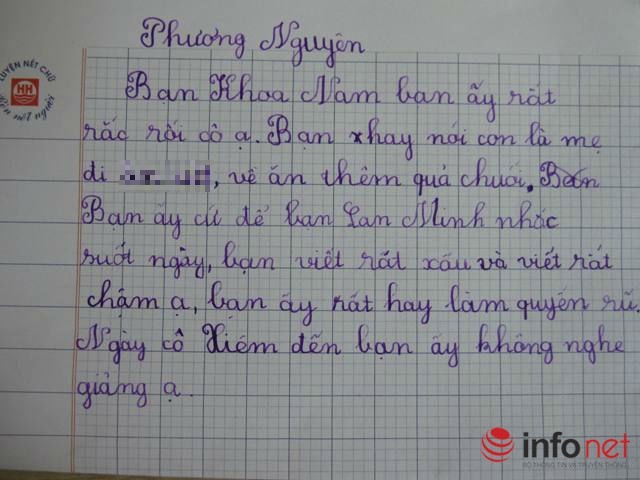 Phương Nguyên
LUYỆN NẾT CHỮ
HH
Rèn nết người
Bạn Khoa Nam bạn ấy rất
rắc rối cô ạ. Bạn hay nói con là mẹ
đi , về ăn thêm quả chuối.
Bạn ấy cứ để bạn Lan Minh nhắc
suốt ngày, bạn viết rất xấu và viết rất
chậm ạ, bạn ấy rất hay làm quyển rũ.
Ngày cô Xiêm đến bạn ấy không nghe
giảng ạ.
infonet
BỘ THÔNG TIN VÀ TRUYỀN THÔNG